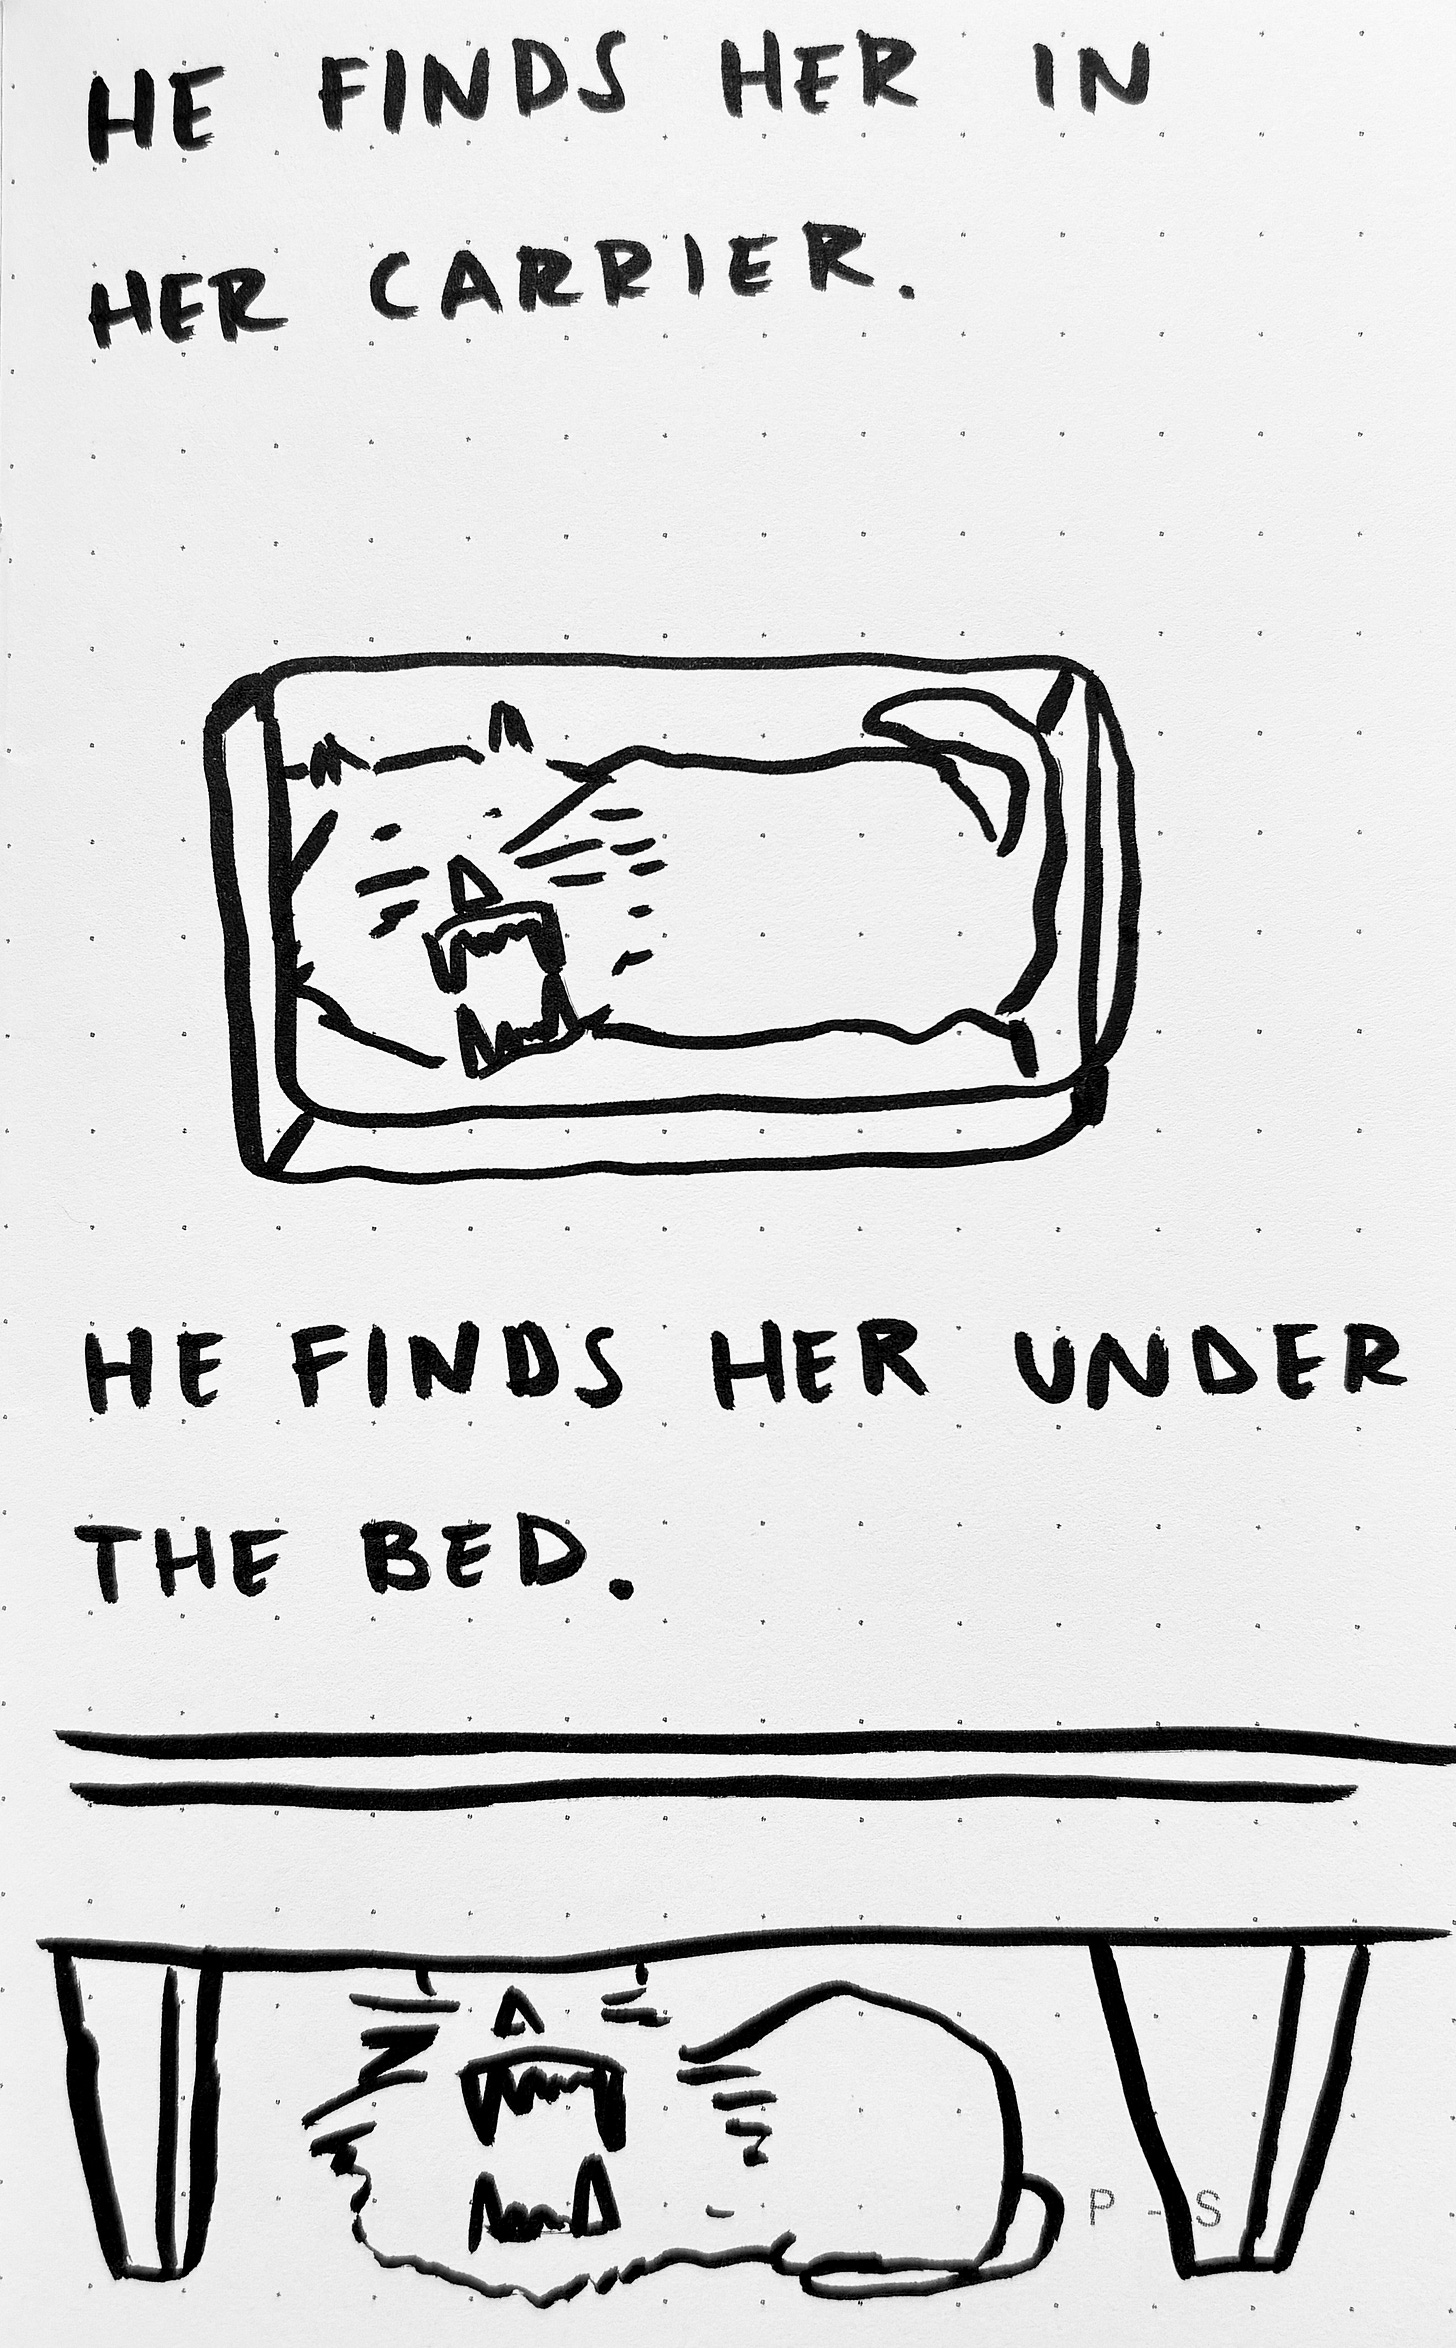 HE FINDS HER IN
HER CARRIER.
HE FINDS HER UNDER
THE BED.
P - S